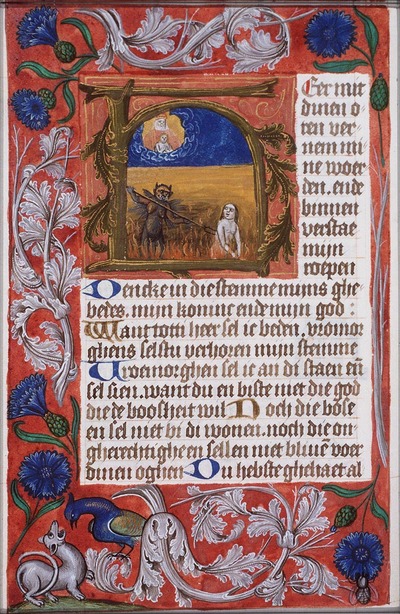 Heer mit
dinen o
ren ver
nem mi
ne woer
den. ende
binnen
verstae
mijn
roepen
Dencke in die stemme mijns ghe
bedes. mijn koninc ende mijn god
Want totti heer sel ic beden. vromor
ghens selstu verhoren mijn stemme
Vroemorghen sel ic an di staen eñ
sel sien. want du en biste niet die god
die de boosheit wil Noch die bose
en sel niet bi di wonen. noch die on
gherechtighe en sellen niet bliuē voer
dinen oghen Du hebste ghehaet al